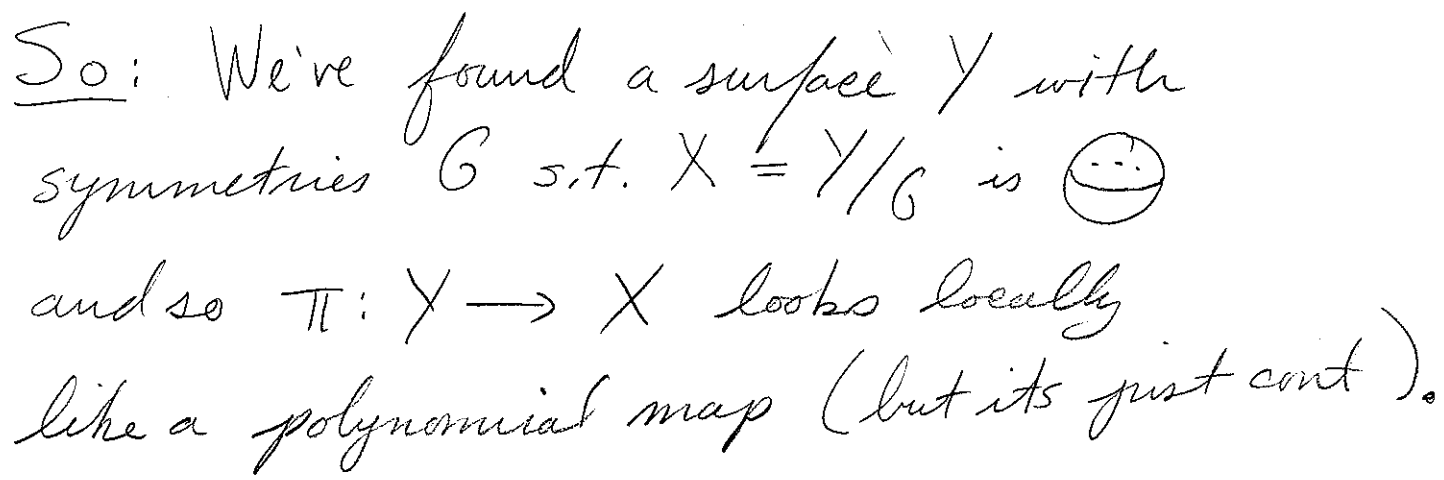 So: We've found a surface Y with
symmetries G s.t. X = Y/G is
and so π: Y → X looks locally
like a polynomial map (but its just cont).